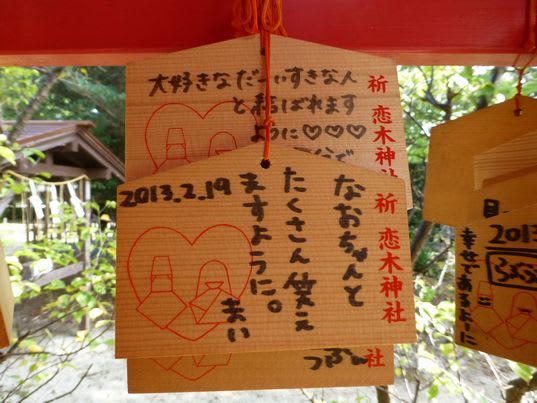 大好きなだーいすきな人
と結ばれます
ように♡♡♡
祈 恋木神社
2013.2.19
なおちゃんと
たくさん笑え
ますように。
まい
祈 恋木神社
社
2013
幸せであるよーに